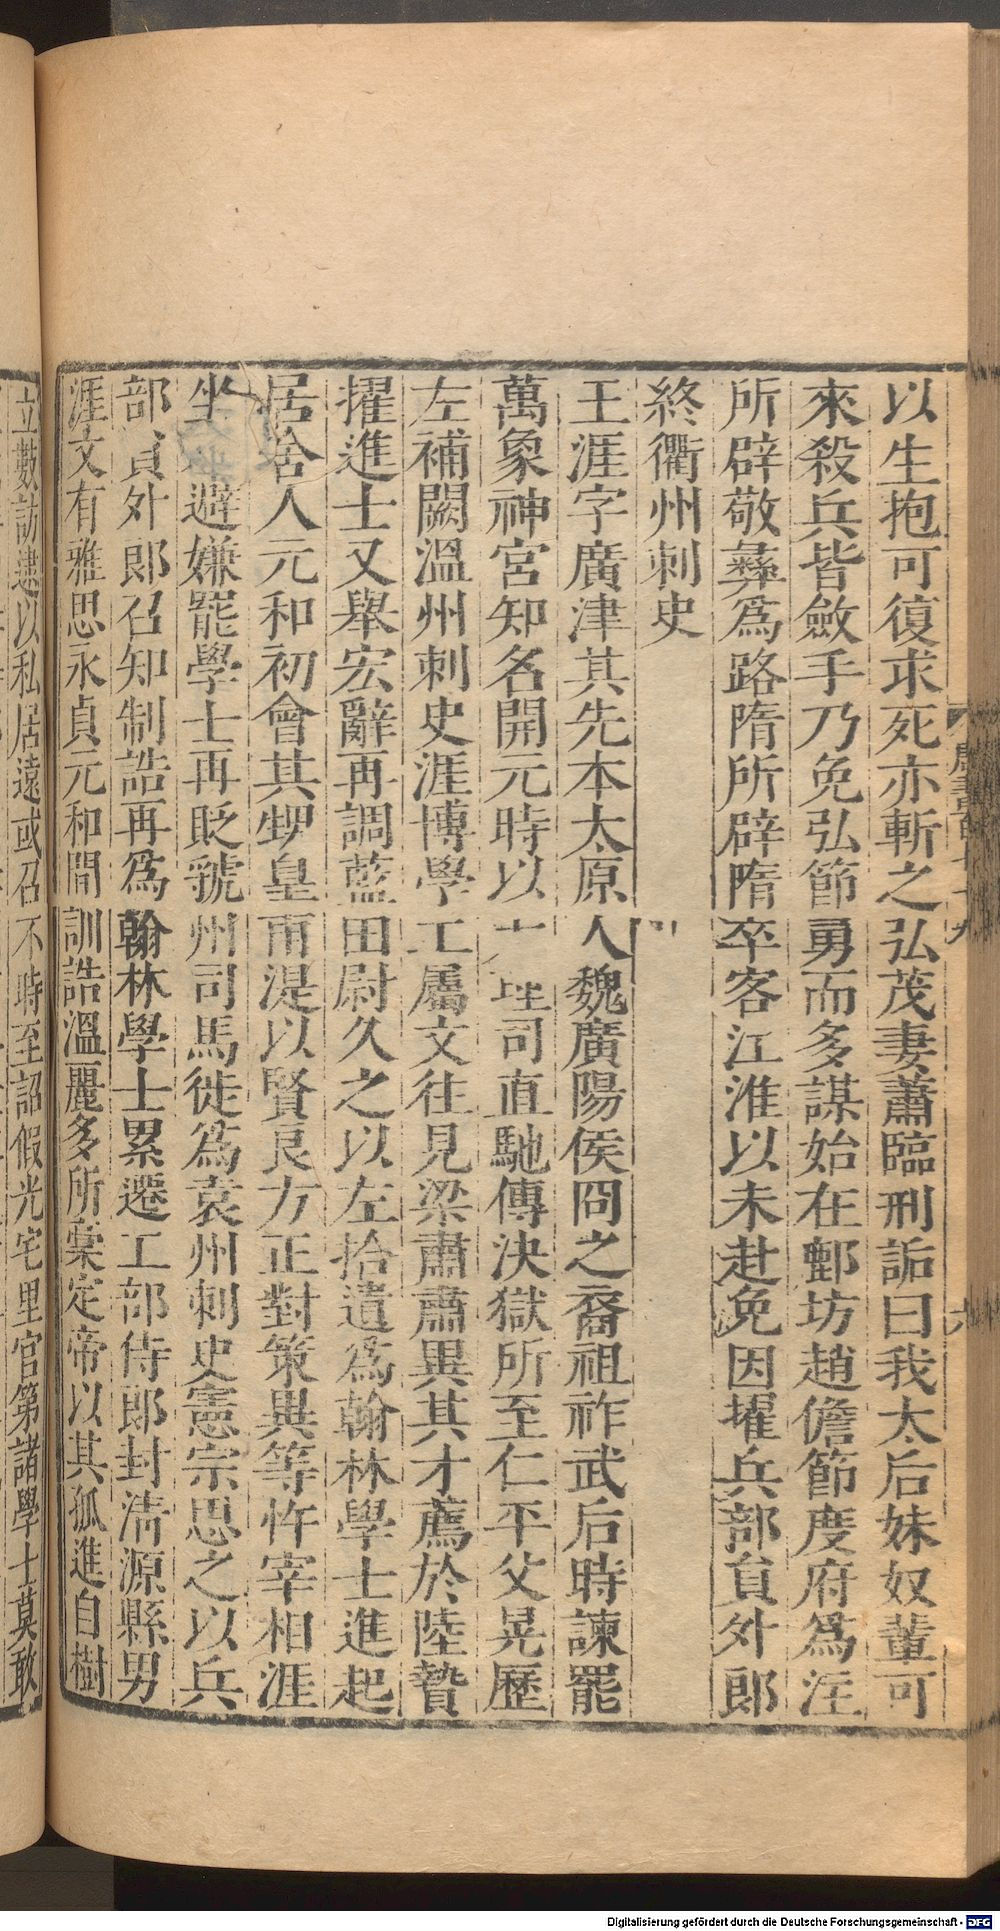 以生抱可復求死亦斬之弘茂妻蕭臨刑詬曰我太后妹奴輩可
來殺兵皆斂手乃免弘節勇而多謀始在鄜坊趙儋節度府爲注
所辟敬彝爲路隋所辟隋卒客江淮以未赴免因擢兵部貟外郎
終衢州刺史
王涯字廣津其先本太原人魏廣陽侯冏之裔祖祚武后時諫罷
萬象神宮知名開元時以大理司直馳傳決獄所至仁平父晃歷
左補闕溫州刺史涯博學工屬文往見梁肅肅異其才薦於陸贄
擢進士又舉宏辭再調藍田尉久之以左拾遺爲翰林學士進起
居舍人元和初會其甥皇甫湜以賢良方正對策異等忤宰相涯
坐避嫌罷學士再貶虢州司馬徙爲袁州刺史憲宗思之以兵
部貟外郎召知制誥再爲翰林學士累遷工部侍郎封清源縣男
涯文有雅思永貞元和間訓誥溫麗多所稾定帝以其孤進自樹
立數訪逮以私居遠或召不時至詔假光宅里官第諸學士莫敢
六
Digitalisierung gefördert durch die Deutsche Forschungsgemeinschaft - DFG